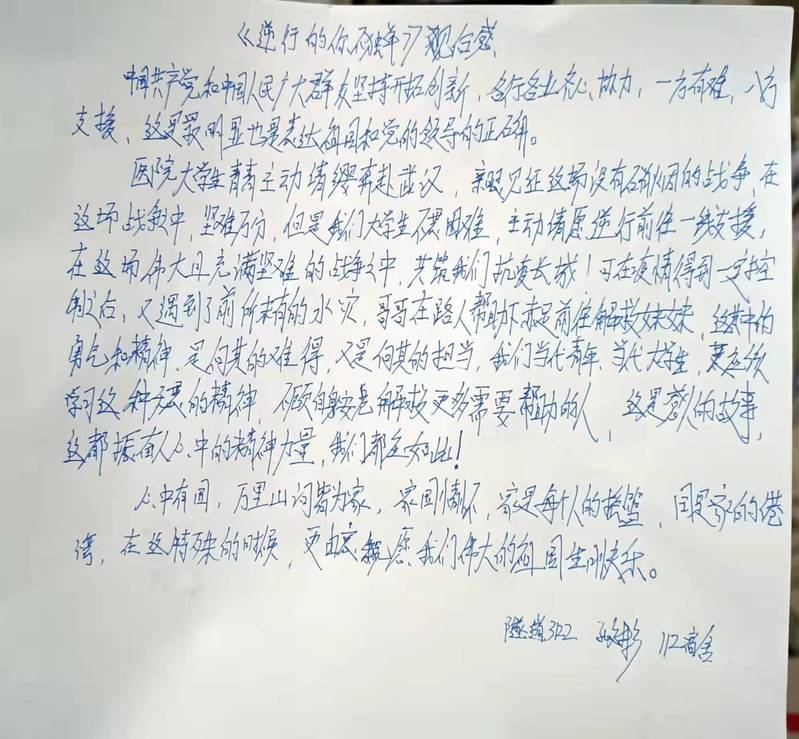 《逆行的你不孤单》观后感
中国共产党和中国人民广大群众坚持开拓创新，各行各业齐心协力，一方有难，八方
支援，这是最明显也是表达祖国和党的领导的正确。
医院大学生青青主动请缨奔赴武汉，亲眼见证这场没有硝烟的战争，在
这场战争中，坚难万分，但是我们大学生不畏困难，主动请愿逆行前往一线支援，
在这场伟大且充满坚难的战争之中，共筑我们抗疫长城！可在疫情得到一定控
制之后，又遇到了前所未有的水灾，哥哥在路人帮助下赤足前往解救妹妹，这其中的
勇气和精神，是何其的难得，又是何其的担当，我们当代青年，当代大学生，更应该
学习这种无畏的精神，不顾自身安危解救更多需要帮助的人，这是感人的故事，
这都振奋人心中的精神力量，我们都应如此！
心中有国，万里山河皆为家，家国情怀，家是每个人的摇篮，国是家的港
湾，在这特殊的时候，更由衷祝愿我们伟大的祖国生日快乐。
隧道312 112宿舍